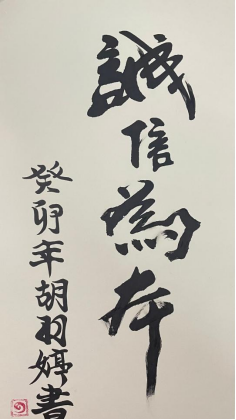 誠信為本
癸卯年胡羽婷書